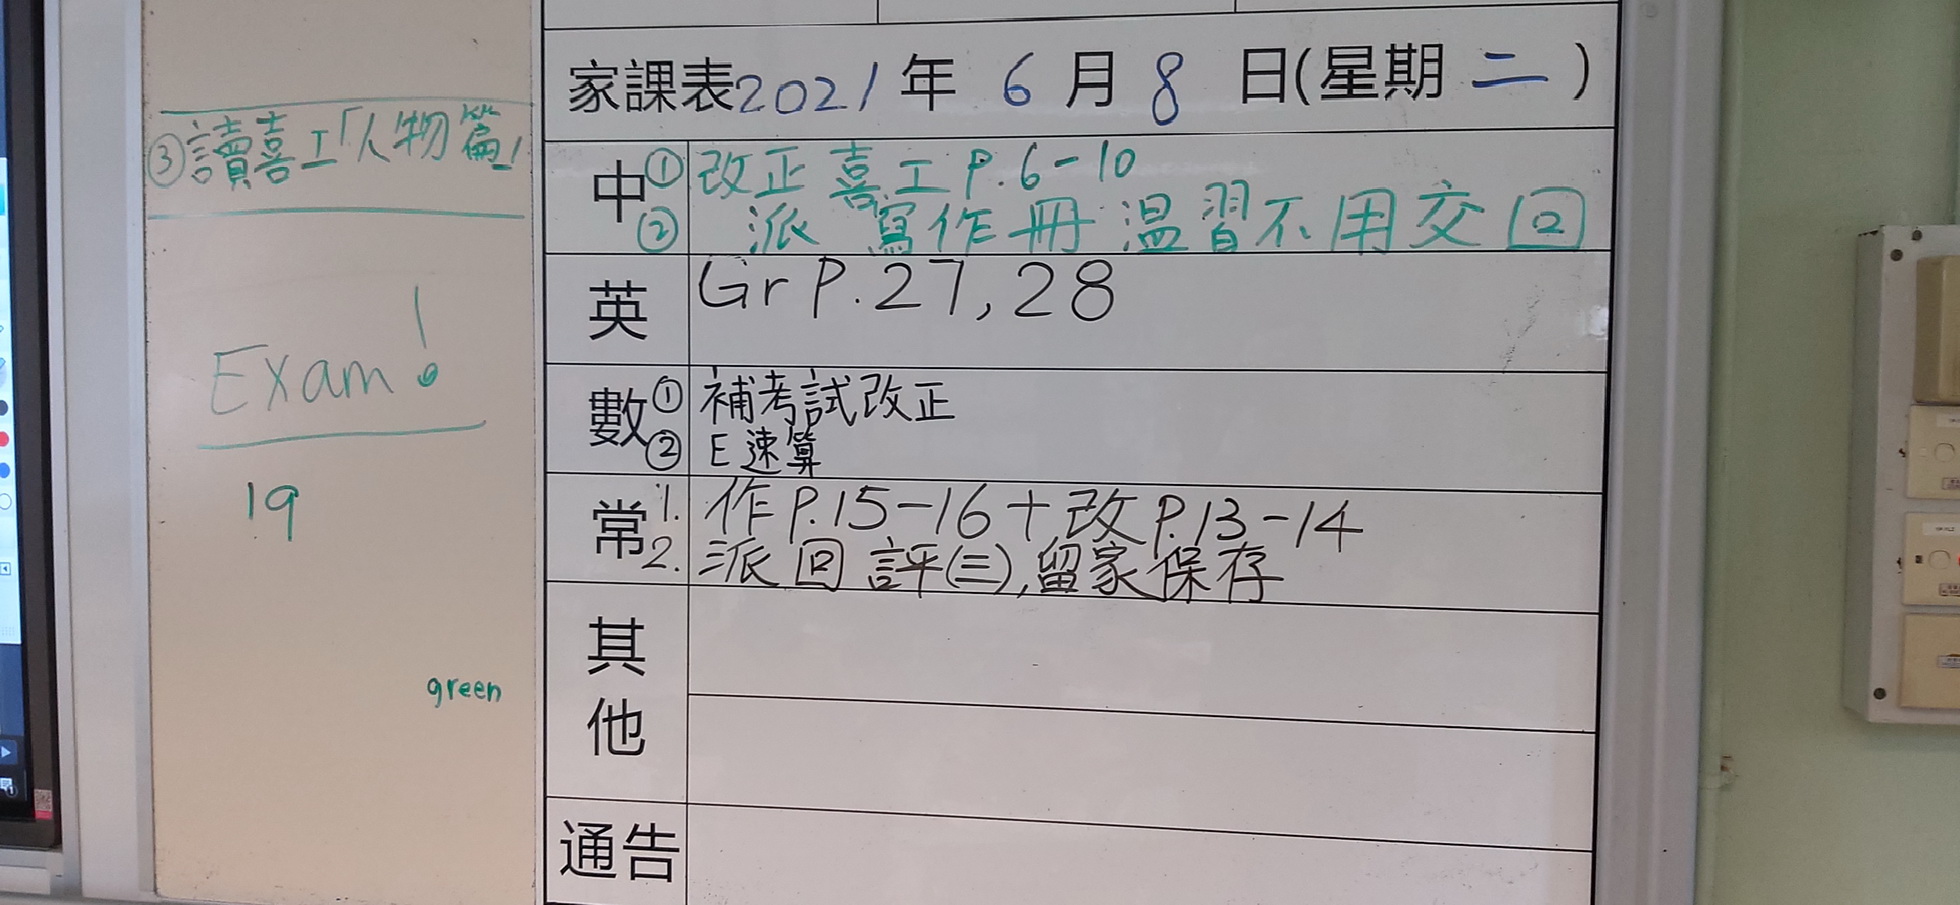 ③讀喜工「人物篇」
Exam!
19
green
家課表2021年 6月 8日(星期 二)
中① 改正喜工P.6-10
② 派 寫作冊 温習不用交回
英 Gr P.27, 28
數① 補考試改正
② E 速算
常1. 作P.15-16+改P.13-14
2. 派回評(三),留家保存
其他
通告